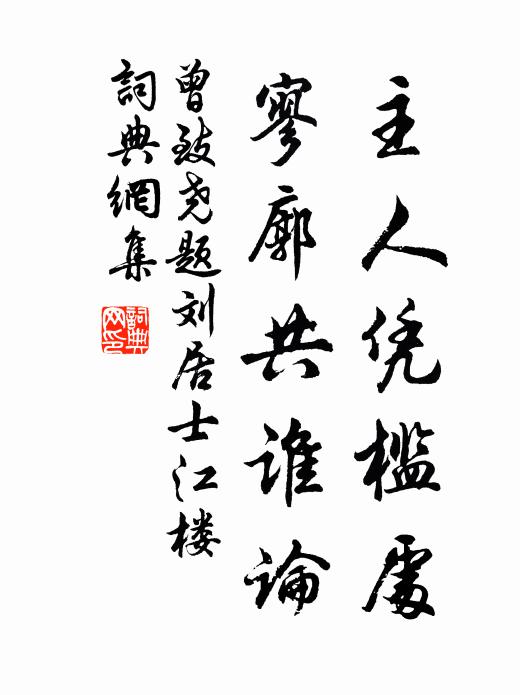 主人凭槛處
寥廓共谁論
曾致尧题刘居士江楼
詞典網集
詞典网印